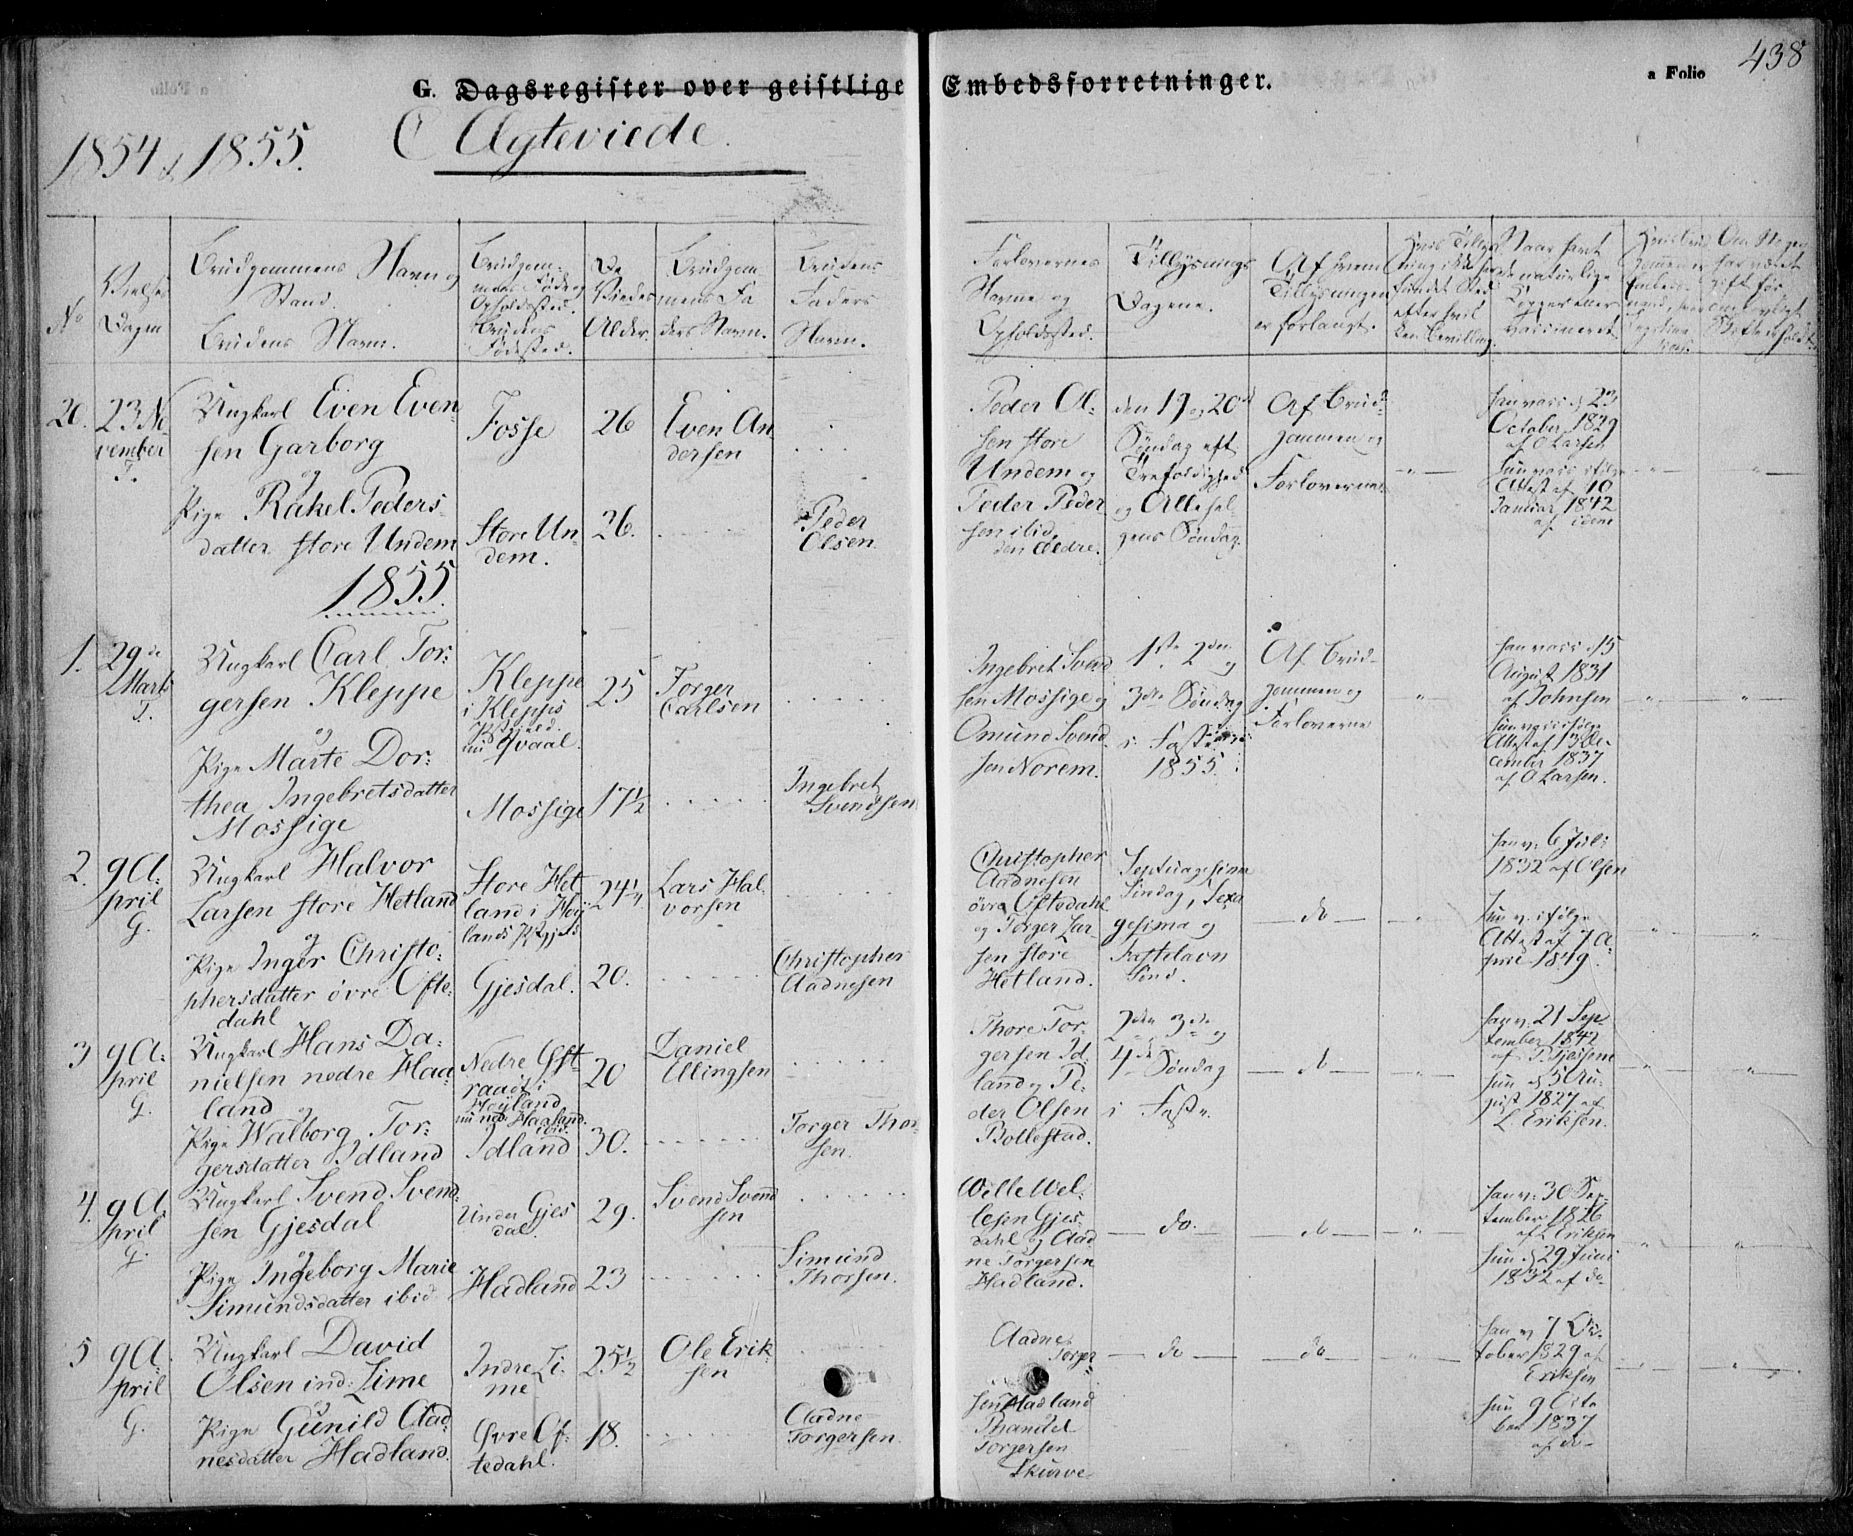 438
a Folio
G. Dagsregister over geistlige Embedsforretninger.
1854 & 1855. C Ægteviede.
No
Vielses Dagen
Brudgommens Navn og
Stand.
Brudens Navn.
Brudgom-
mens Føde og
Opholdssted.
Brudens
Fødested.
De
Viedes
Alder.
Brudgom
mens Fa
ders Navn.
Brudens
Faders
Navn.
Forlovernes
Navne og
Opholdssted.
Tillysnings
Dagene.
Af hvem
Tillysningen
er forlangt.
Naar havt
de naturlige
Kopper eller
vaccineret
20.
23 No
vember
T.
Ungkarl Even Even
sen Garborg
og
Pige Rakel Peders
datter store Undem
Fosse
Store Un
dem.
26
26.
Even An
dersen
Peder
Olsen
Peder Ol-
sen store
Undem og
Peder Peder
sen ibid.
den Ældre.
den 19 og 20d
Søndag eft
Trefoldighed
og Allehel
gens Søndag.
Af Brud-
gommen og
Forloverne
han vacc. d 23
October 1829
af O Larsen
hun vacc. ifølge
Attest af 10
Januar 1842
af idem
1855.
1.
29de
Marts
T.
Ungkarl Carl Tor-
gersen Kleppe
og
Pige Marte Dor-
thea Ingebretsdatter
Mossige
Kleppe
i Klepps
Pstgjeld.
nu Qvaal.
Mossige
25
17½
Torger
Carlsen
Ingebret
Svendsen
Ingebret Svend
sen Mossige og
Omund Svend
sen Norem.
1ste 2den og
3die Søndag
i Fasten
1855.
Af Brud-
gommen og
Forloverne
han vacc. 15
August 1831
af Johnsen
hun vacc. ifølge
Attest af 13 De-
cember 1837
af O Larsen.
2.
9 A-
pril
G.
Ungkarl Halvor
Larsen store Hetland
og
Pige Inger Christo-
phersdatter övre Ofte-
dahl
Store Het
land i Høy
lands Pgjeld
Gjesdal.
24½
20.
Lars Hal
vorsen
Christopher
Aadnesen
Christopher
Aadnesen
övre Oftedahl
og Torger Lar-
sen store
Hetland.
Septuagesima
Sindag, Sexa
gesima og
Fastelavn
Sind.
do
han v. 6 Juli
1832 af Olsen
hun v. ifølge
Attest af 7 A-
pril 1849.
3
9 A-
pril
G.
Ungkarl Hans Da-
nielsen nedre Haa
land
og
Pige Walborg Tor-
gersdatter Idland
Nedre
raadt i
Høyland
nu ned. Haaland
ibid.
Idland
20
30.
Daniel
Ellingsen
Torger Thor
sen.
Thore Tor-
gersen Id-
land og Pe-
der Olsen
Bollestad.
2den 3die og
4de Søndag
i Faste.
do
han v. 21 Sep
tember 1842
hun d. 5 Au-
gust 1827 af
L Eriksen.
4.
9 A
pril
G.
Ungkarl Svend Svend
sen Gjesdal
og
Pige Ingeborg Marie
Simundsdatter ibid.
Under Gjes
dal.
Hadland
29.
23
Svend Svend
sen
Simund
Thorsen.
Wille Wel-
lesen Gjes-
dahl og Aad
ne Torgersen
Hadland.
do.
do
han v. 30 Sep
tember 1826
af L Eriksen
hun d 29 Juni
1832 af do
5
9 A
pril
G.
Ungkarl David
Olsen ind. Lime
og
Pige Gunild Aad
nesdatter Hadland.
Indre Li-
me
Øvre Of-
tedahl.
25½
18.
Ole Erik-
sen
Aadne
Torgersen.
Aadne
Torger
sen Hadland
Torgersen
Skurve
do
do
han v 7 Oc-
tober 1829 af
Eriksen
hun 9 Octo
ber 1837
af do